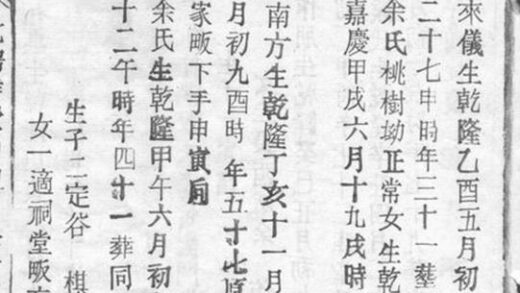 來儀生乾隆乙酉五月初
二十七申時年三十一塟
余氏桃樹坳正常女生乾
嘉慶甲戌六月十九戌時
南方生乾隆丁亥十一月
月初九酉時 年五十七原
家畈下手申寅向
余氏生乾隆甲午六月初
十二午時年四十一葬同
生子二定谷 棋
女一適祠堂畈